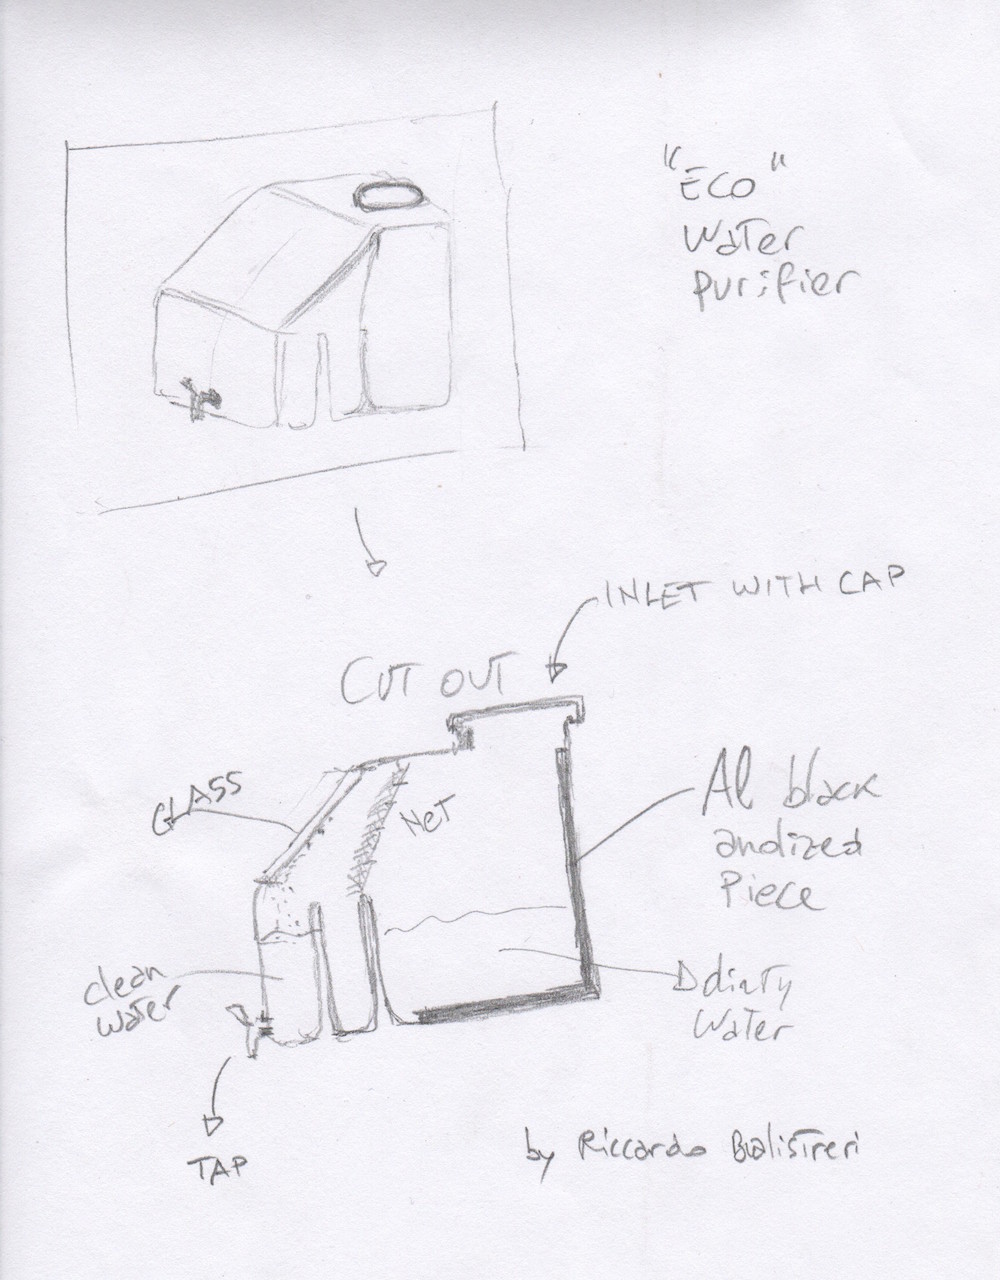 "ECO"
Water
purifier
INLET WITH CAP
CUT OUT
GLASS
NET
Al black
andized
Piece
clean
water
Ddirty
Water
TAP
by Riccardo Bualistreri